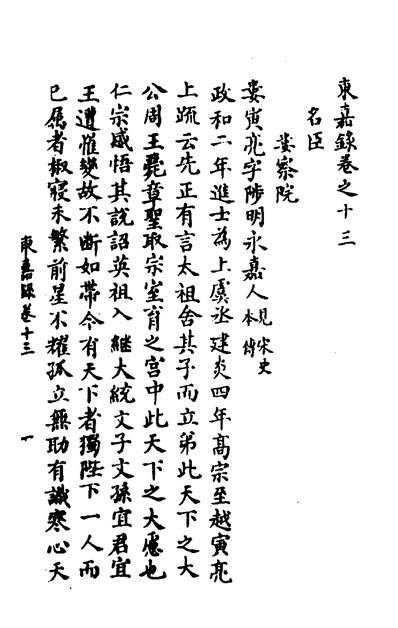 東嘉錄卷之十三
名臣
婁察院
婁寅亮字陟明永嘉人見宋史本傳
政和二年進士為上虞丞建炎四年高宗至越寅亮
上疏云先正有言太祖舍其子而立弟此天下之大
公周王薨章聖取宗室育之宮中此天下之大慮也
仁宗感悟其說詔英祖入繼大統文子文孫宜君宜
王遭惟變故不斷如帶今有天下者獨陛下一人而
已屬者椒寢未繁前星不耀孤立無助有識寒心天
東嘉錄卷十三
一